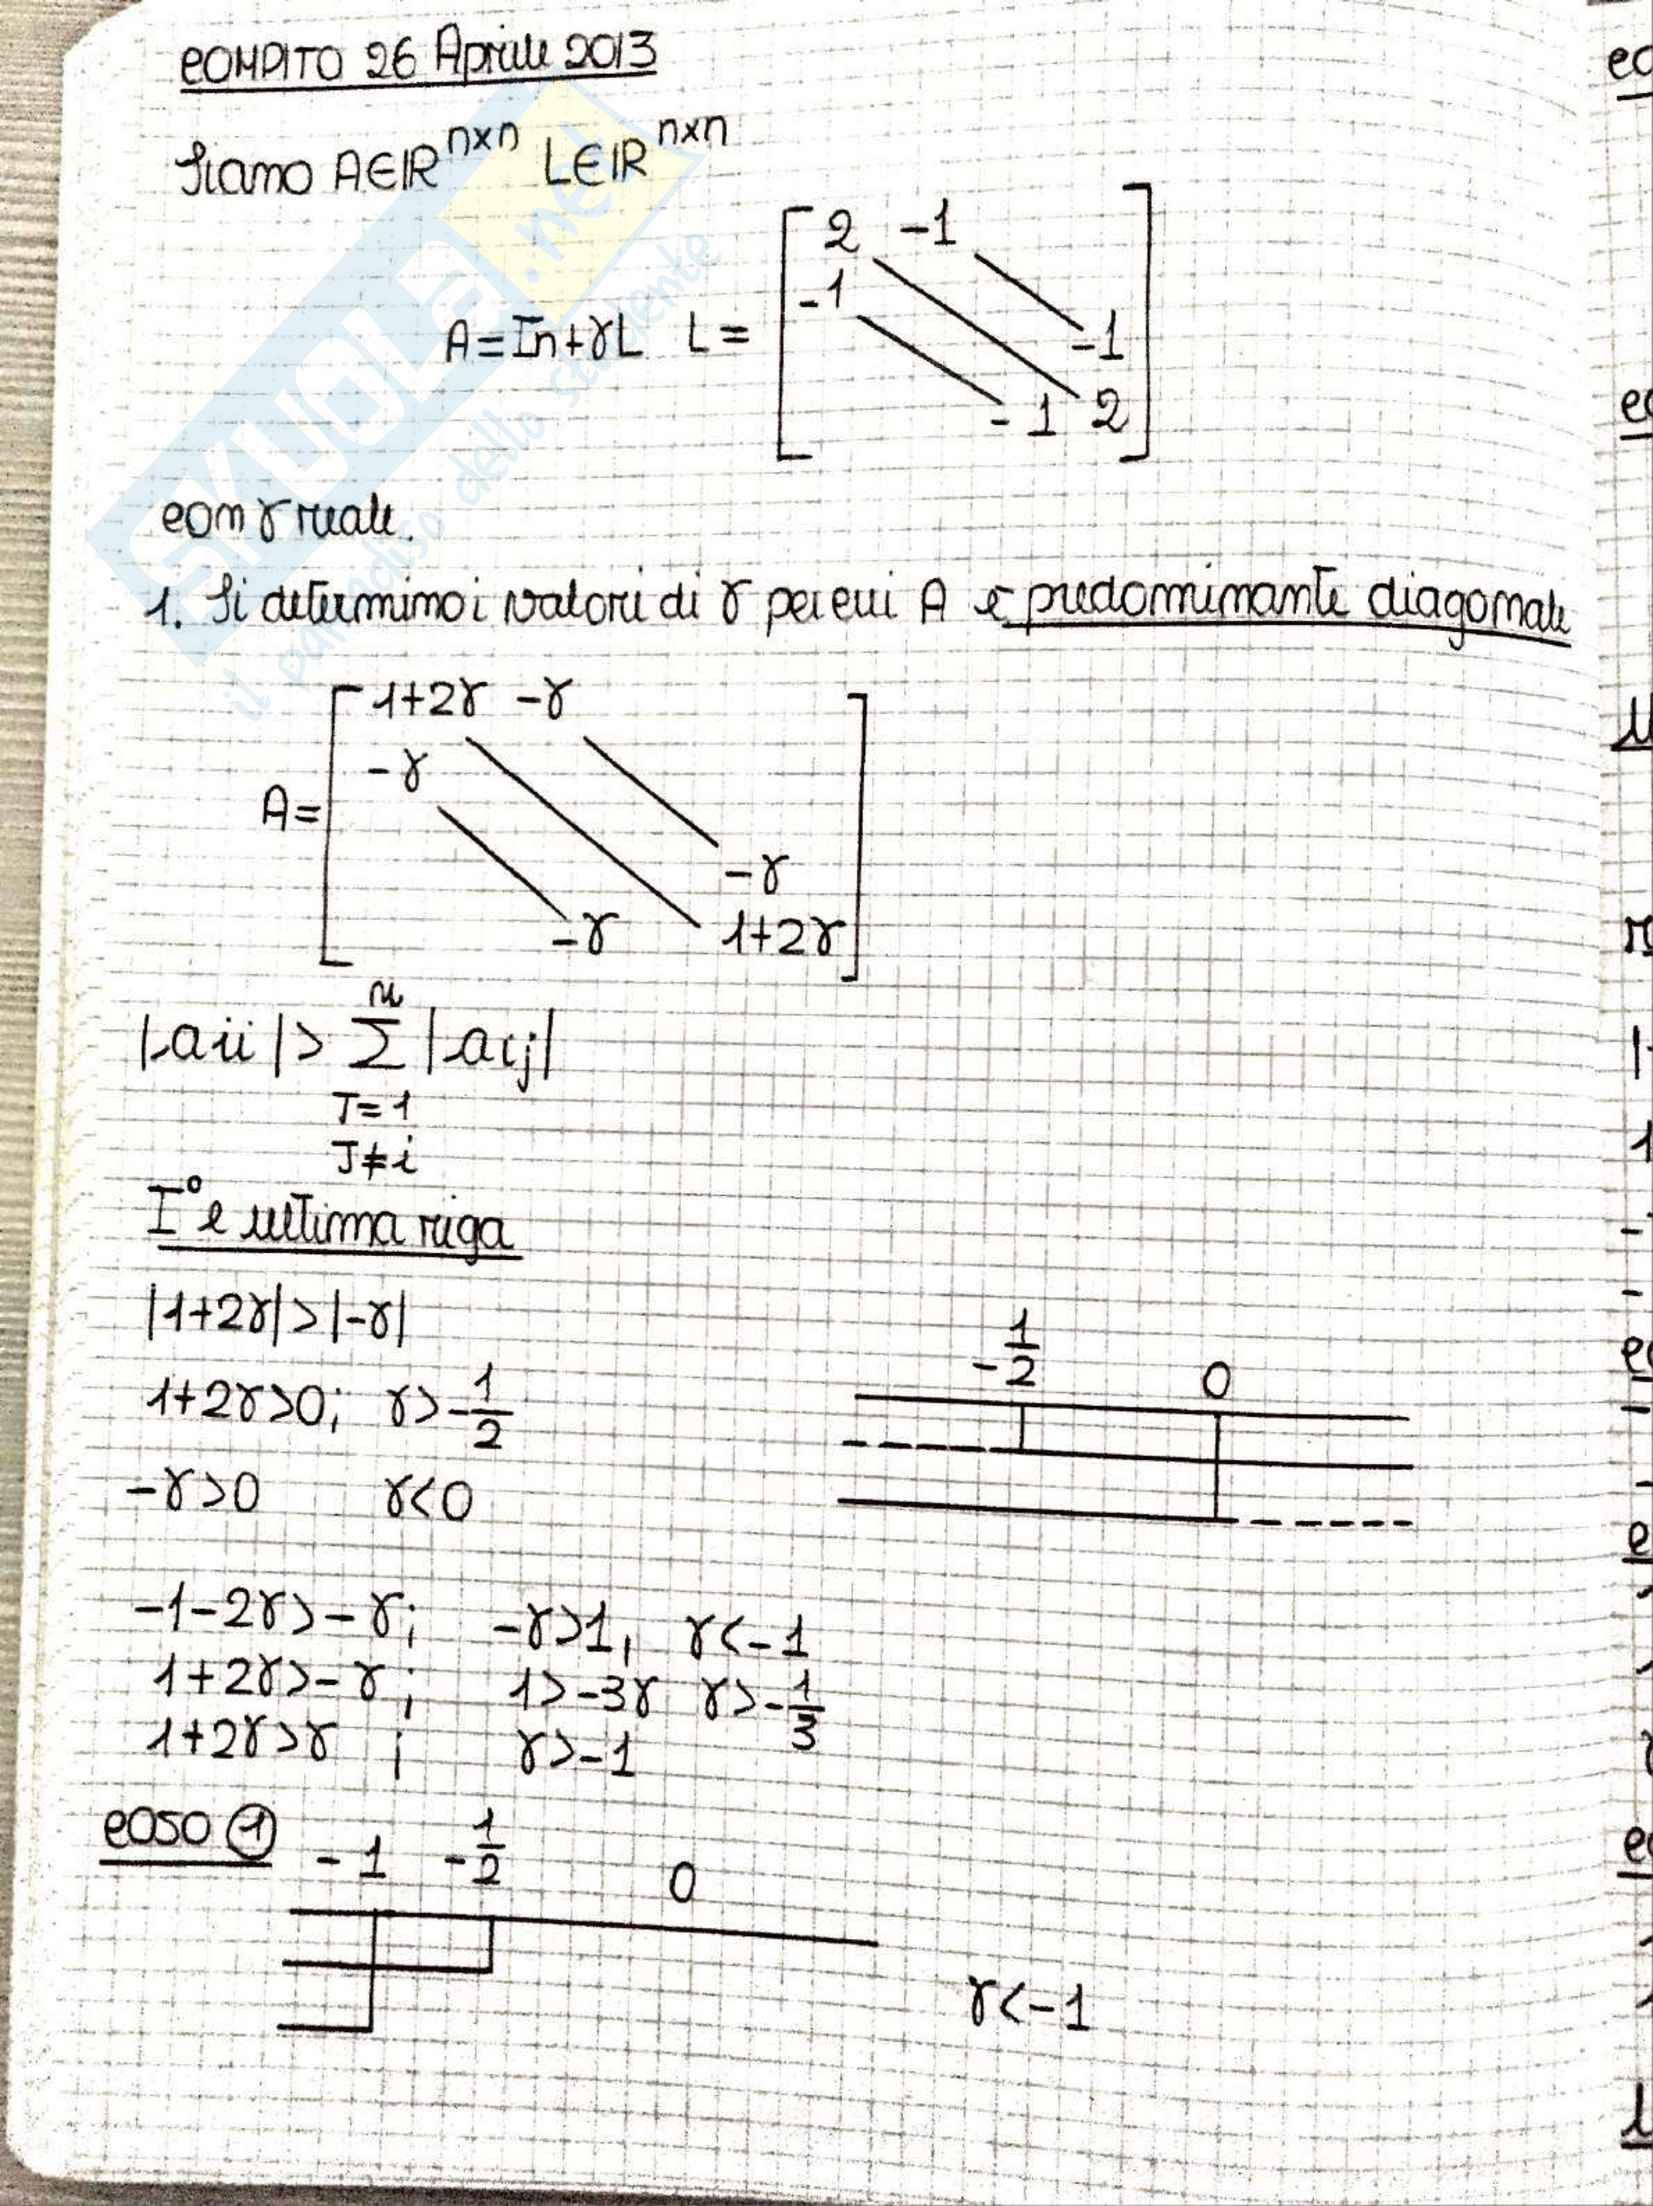 COMPITO 26 Aprile 2013
Siano A∈ℝ^{n×n} L∈ℝ^{n×n}
A=In+γL L= [ 2 -1
-1
-1
-1 2 ]
con γ reale.
1. Si determino i valori di γ per cui A è predominante diagonale
A= [ 1+2γ -γ
-γ
-γ
-γ 1+2γ ]
|aii| > n∑ |aij|
J=1
J≠i
I° e ultima riga
|1+2γ|>|-γ|
1+2γ>0; γ>-1/2
-γ>0 γ<0
-1/2 0
-1-2γ>-γ; -γ>1, γ<-1
1+2γ>-γ; 1>-3γ γ>-1/3
1+2γ>γ ; γ>-1
caso ①
-1 -1/2 0
γ<-1
SKUOLA.net
il paradiso dello studente